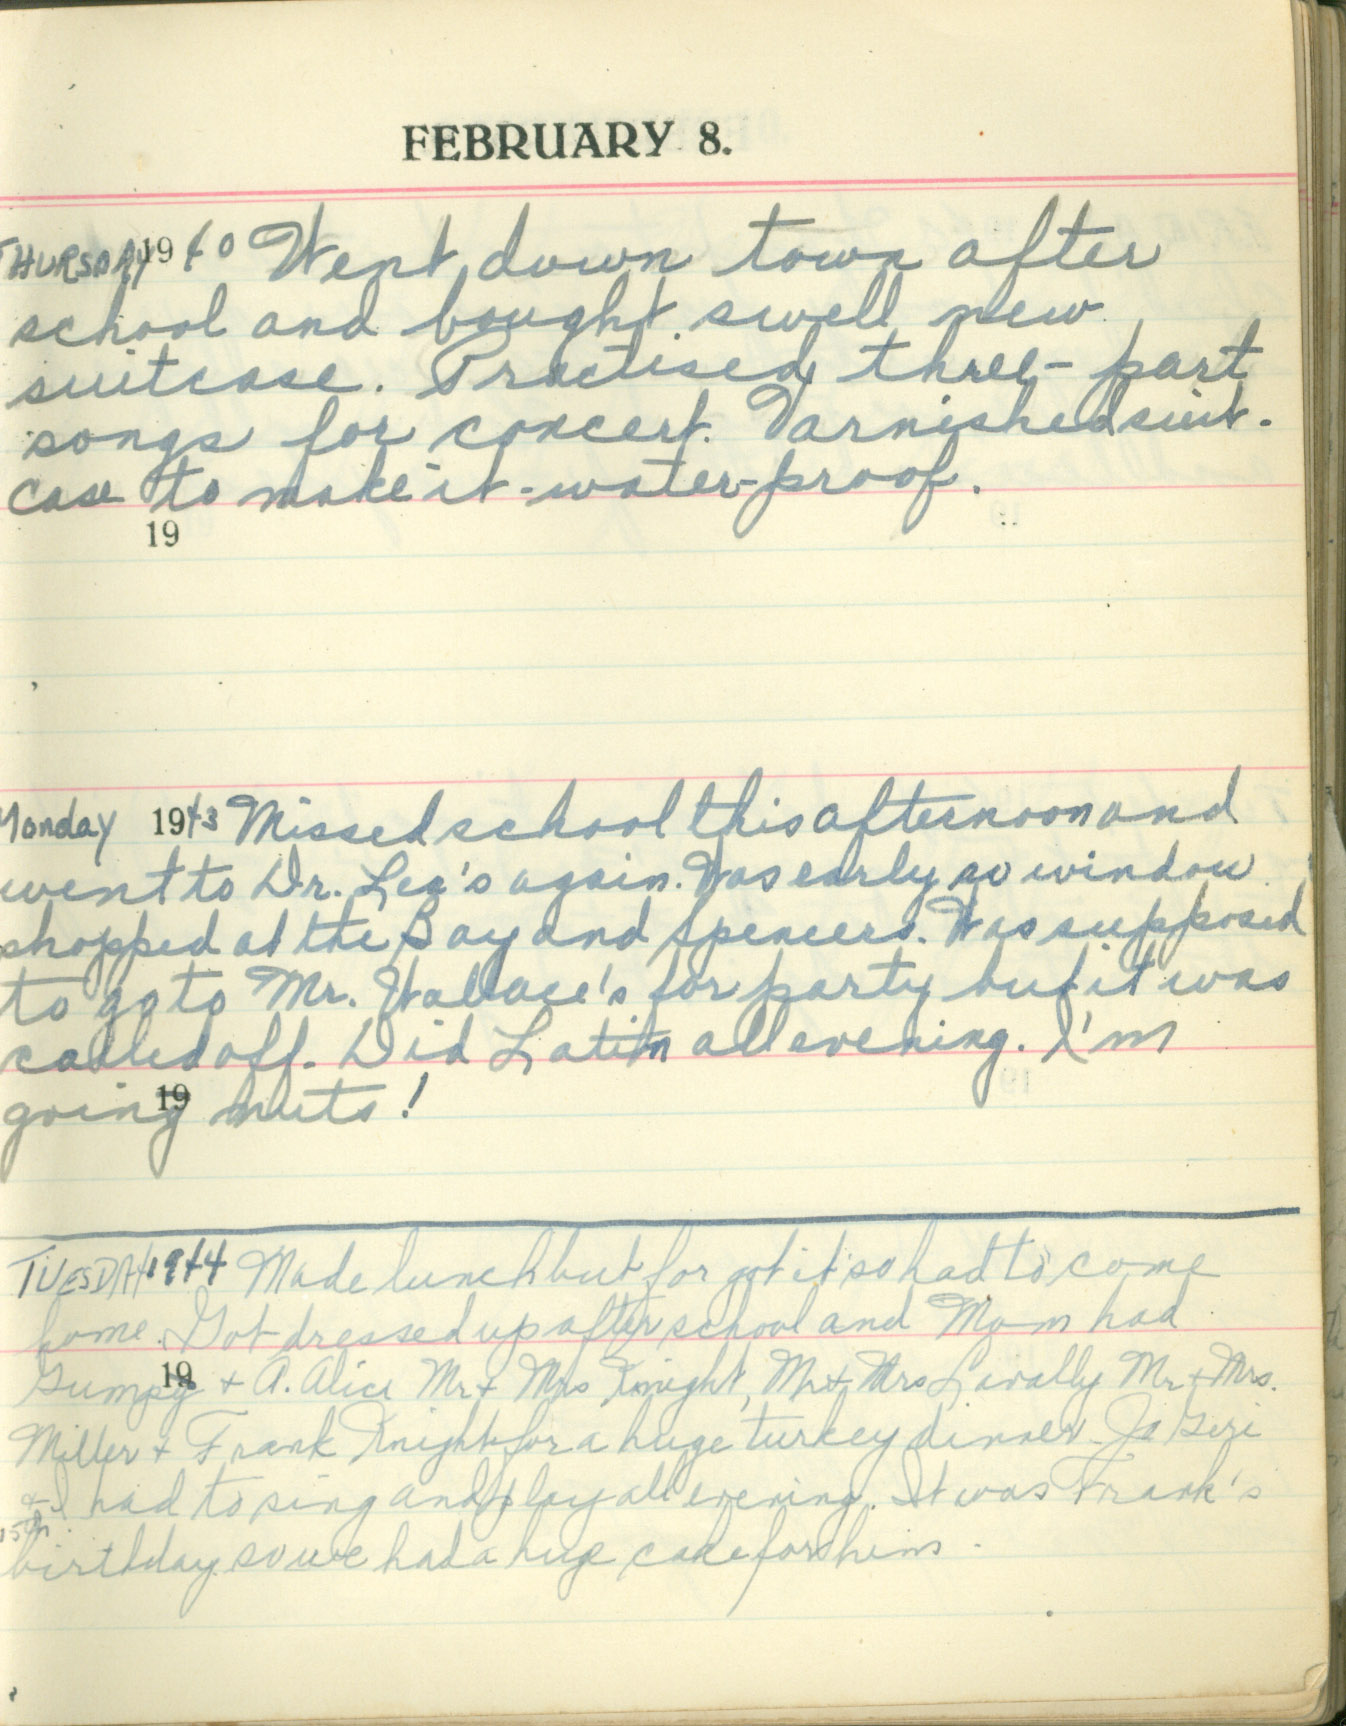 FEBRUARY 8.
THURSDAY 1940 Went down town after
school and bought swell new
suitcase. Practised three-part
songs for concert. Varnished suit-
case to make it water-proof.
19
Monday 1943 Missed school this afternoon and
went to Dr. Lea's again. Was early so window
shopped at the Bay and Spencers. Was supposed
to go to Mr. Wallace's for party but it was
called off. Did Latin all evening. I'm
going nuts!
19
TUESDAY 1944 Made lunch but forgot it so had to come
home. Got dressed up after school and Mom had
19
Gumpy + A. Alice Mr + Mrs Knight, Mr + Mrs Lavally Mr + Mrs.
Miller + Frank Knight for a huge turkey dinner. Jo Geri
+ I had to sing and play all evening. It was Frank's
15th
birthday so we had a huge cake for him.